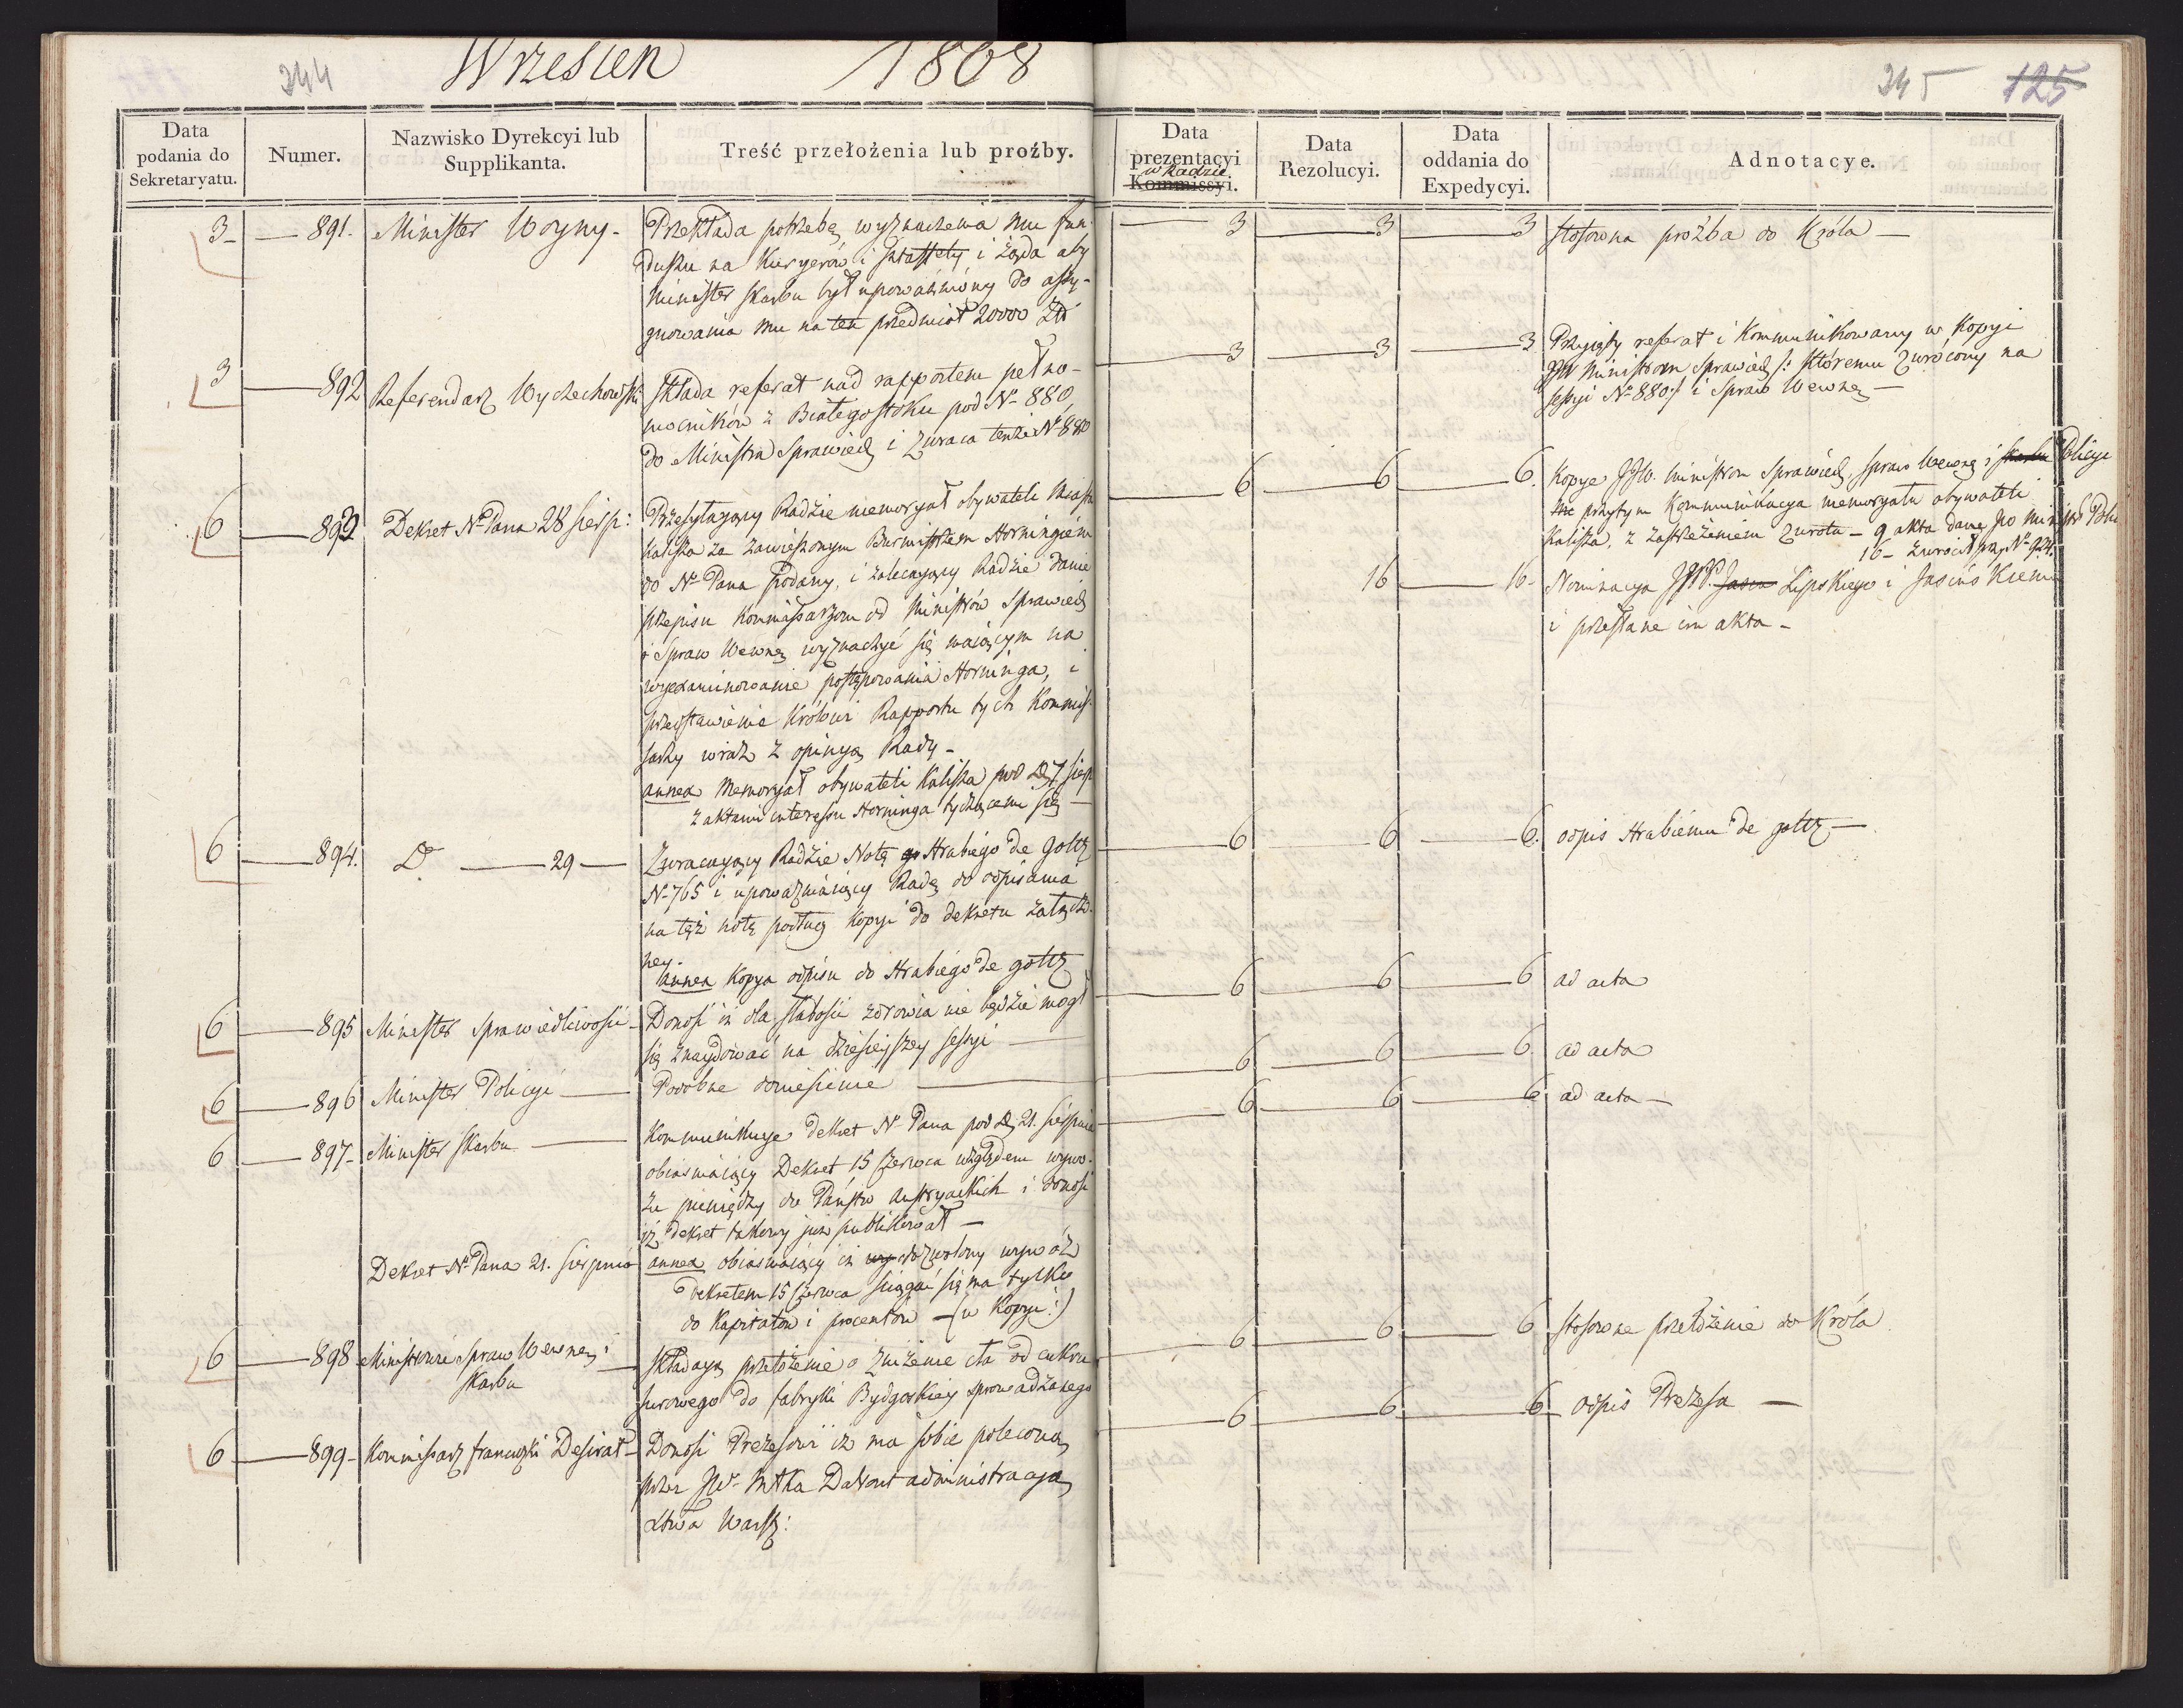 244
Wrzesień 1808
Data podania do Sekretaryatu.
Numer.
Nazwisko Dyrekcyi lub Supplikanta.
Treść przełożenia lub prozby.
3 — 891. Minister Woyny —
Przekłada potrzebę wyznaczenia mu fun-
duszu na Kuryerów i sztafety i żąda aby
Minister Skarbu był upoważniony do assy-
gnowania mu na ten przedmiot 20000 Zł
3 — 892 Referendarz Wyczechowski
Składa referat nad rapportem pełno-
mocników z Białegostoku pod N. 880,
do Ministra Sprawiedl i zwraca tenże N. 880
6 — 893 Dekret N. Pana 28 sierp:
Przesyłaiący Radzie memoryał obywateli Miasta
Kalisza za zawieszonym Burmistrzem Horningiem
do N. Pana podany, i zalecaiący Radzie danie
przepisu Kommissarzom od Ministrów Sprawied
i Spraw Wewnę wyznaczyć się maiącym na
wyexaminowanie postępowania Horninga, i
przedstawienie Królowi Rapportu tych Kommis-
sarzy wraz z opinyą Rady —
annex Memoryał obywateli Kalisza pod D. 7 sierp
z aktami interesu Horninga tyczącemi się —
6 — 894. Do — 29 —
Zwracaiący Radzie Notę Hrabiego de Goltz
N. 765 i upoważniaiący Radę do odpisania
na tęż notę podług Kopyi do dekretu załączo-
ney.
annex Kopya odpisu do Hrabiego de Goltz
6 — 895 Minister Sprawiedliwości —
Donosi iż dla słabości zdrowia nie będzie mogł
się znaydować na dzisieyszey sessyi —
6 — 896 Minister Policyi —
Podobne doniesienie —
6 — 897 — Minister Skarbu —
Kommunikuye dekret N. Pana pod D. 21. sierpnia
obiaśniaiący Dekret 15 Czerwca względem wywo-
zu pieniędzy do Państw Austryackich i donosi
iż dekret takowy już publikował —
Dekret N. Pana 21. sierpnia
annex obiaśniaiący iż dozwolony wywóz
Dekretem 15 Czerwca ściągać się ma tylko
do Kapitałów i procentów — (w Kopyi:)
6 — 898 Ministrowie Spraw Wewnę i
Skarbu —
Składaią przełożenie o zniżenie cła od cukru
surowego do fabryki Bydgoskiey sprowadzanego
6 — 899 — Kommissarz francuzki Desirat —
Donosi Prezesowi iż ma sobie poleconą
przez JW. Mtka Davout administracyą
Xtwa Warsz:
245 125
Data prezentacyi w Radzie Kommissyi.
Data Rezolucyi.
Data oddania do Expedycyi.
Adnotacye.
3 — 3 — 3 stosowna proźba do Króla —
3 — 3 — 3 Przyięty referat i Kommunikowany w Kopyi
JJW Ministrom Sprawied /: któremu zwrócony na
sessyi N. 880 :/ i Spraw Wewnę —
6 — 6 — 6. Kopye JJW. Ministrom Sprawied, Spraw Wewnę i Skarbu Policyi
przytym Kommunikacya memoryału obywateli
Kalisza, z zastrzeżeniem zwrotu — 9 akta dane JW Ministro Polic
16 — zwrócił przy N. 924.
16 — 16 — Nominacya JJPP. Lipskiego i Jasińskiemu
i przesłane im akta —
6 — 6 — 6. odpis Hrabiemu de Goltz —
6 — 6 — 6 ad acta
6 — 6 — 6. ad acta
6 — 6 — 6 ad acta —
6 — 6 — 6 stosowne przełożenie do Króla
6 — 6 — 6 odpis Prezesa —